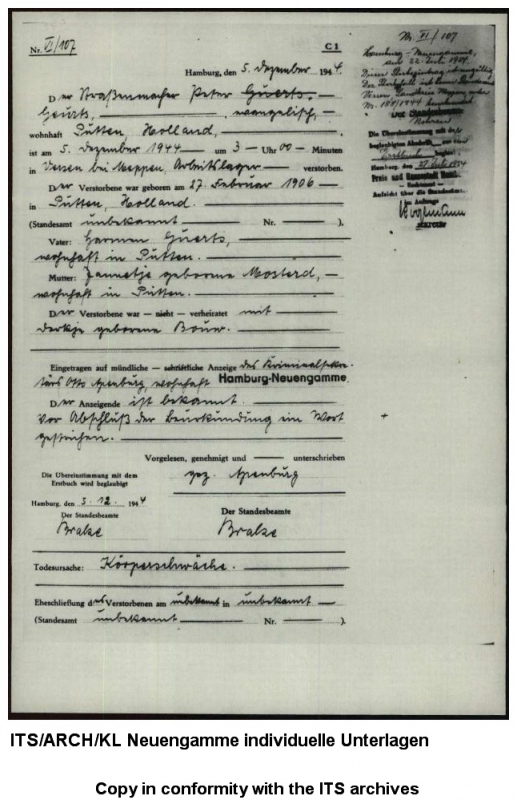 Nr. VI/107
C 1
Hamburg, den 5. Dezember 1944.
Der Straßenmacher Peter Guerts,
Geurts, evangelisch,
wohnhaft Putten, Holland,
ist am 5. Dezember 1944 um 3 Uhr 00 Minuten
in Versen bei Meppen, Arbeitslager verstorben.
Der Verstorbene war geboren am 27. Februar 1906
in Putten, Holland.
(Standesamt unbekannt Nr. ).
Vater: Harmen Guerts,
wohnhaft in Putten.
Mutter: Jannetje geborene Mosterd,
wohnhaft in Putten.
Der Verstorbene war — nicht — verheiratet mit
geborene Bouw.
Eingetragen auf mündliche — schriftliche Anzeige des Kriminalsekre-
tärs Otto Apenburg, wohnhaft Hamburg-Neuengamme
Der Anzeigende ist bekannt.
Vor Abschluß der Beurkundung ein Wort
gestrichen.
Vorgelesen, genehmigt und unterschrieben
gez. Apenburg
Die Übereinstimmung mit dem
Erstbuch wird beglaubigt
Hamburg, den 5. 12. 1944
Der Standesbeamte
Brake
Der Standesbeamte
Brake
Todesursache: Körperschwäche.
Eheschließung des Verstorbenen am unbekannt in unbekannt
(Standesamt unbekannt Nr. ).
Nr. VI/107
Hamburg-Neuengamme,
am 22. Juli 1954.
Die Übereinstimmung mit dem
Freie und Hansestadt
ITS/ARCH/KL Neuengamme individuelle Unterlagen
Copy in conformity with the ITS archives